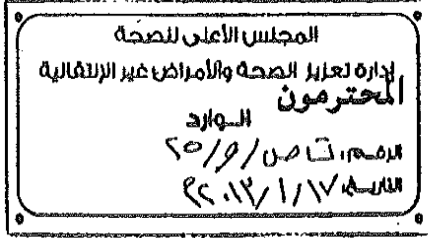 المجلس الأعلى للصحة
إدارة تعزيز الصحة والأمراض غير الإنتقالية
المحترمون
الوارد
الرقم: ت ص / و / ٢٥
التاريخ: ٢٠١٣/١/١٧م